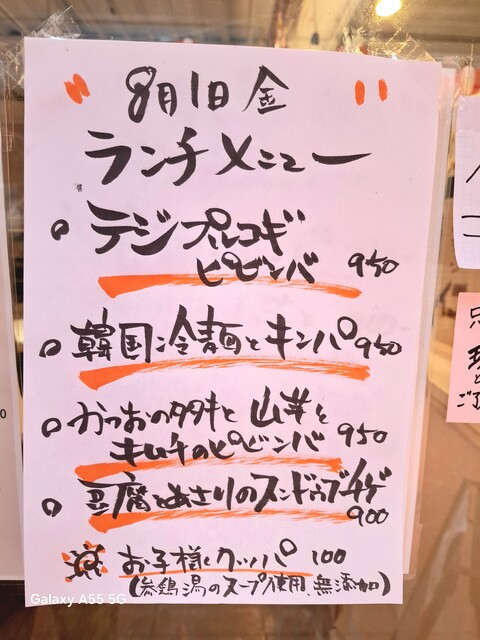 8月1日 金
ランチメニュー
テジプルコギ
ピビンバ 950
韓国冷麺とキンパ 950
かつおのタタキと 山芋と
キムチのピビンバ 950
豆腐とあさりのスンドゥブチゲ
900
お子様クッパ 100
(参鶏湯のスープ使用、無添加)
Galaxy A55 5G